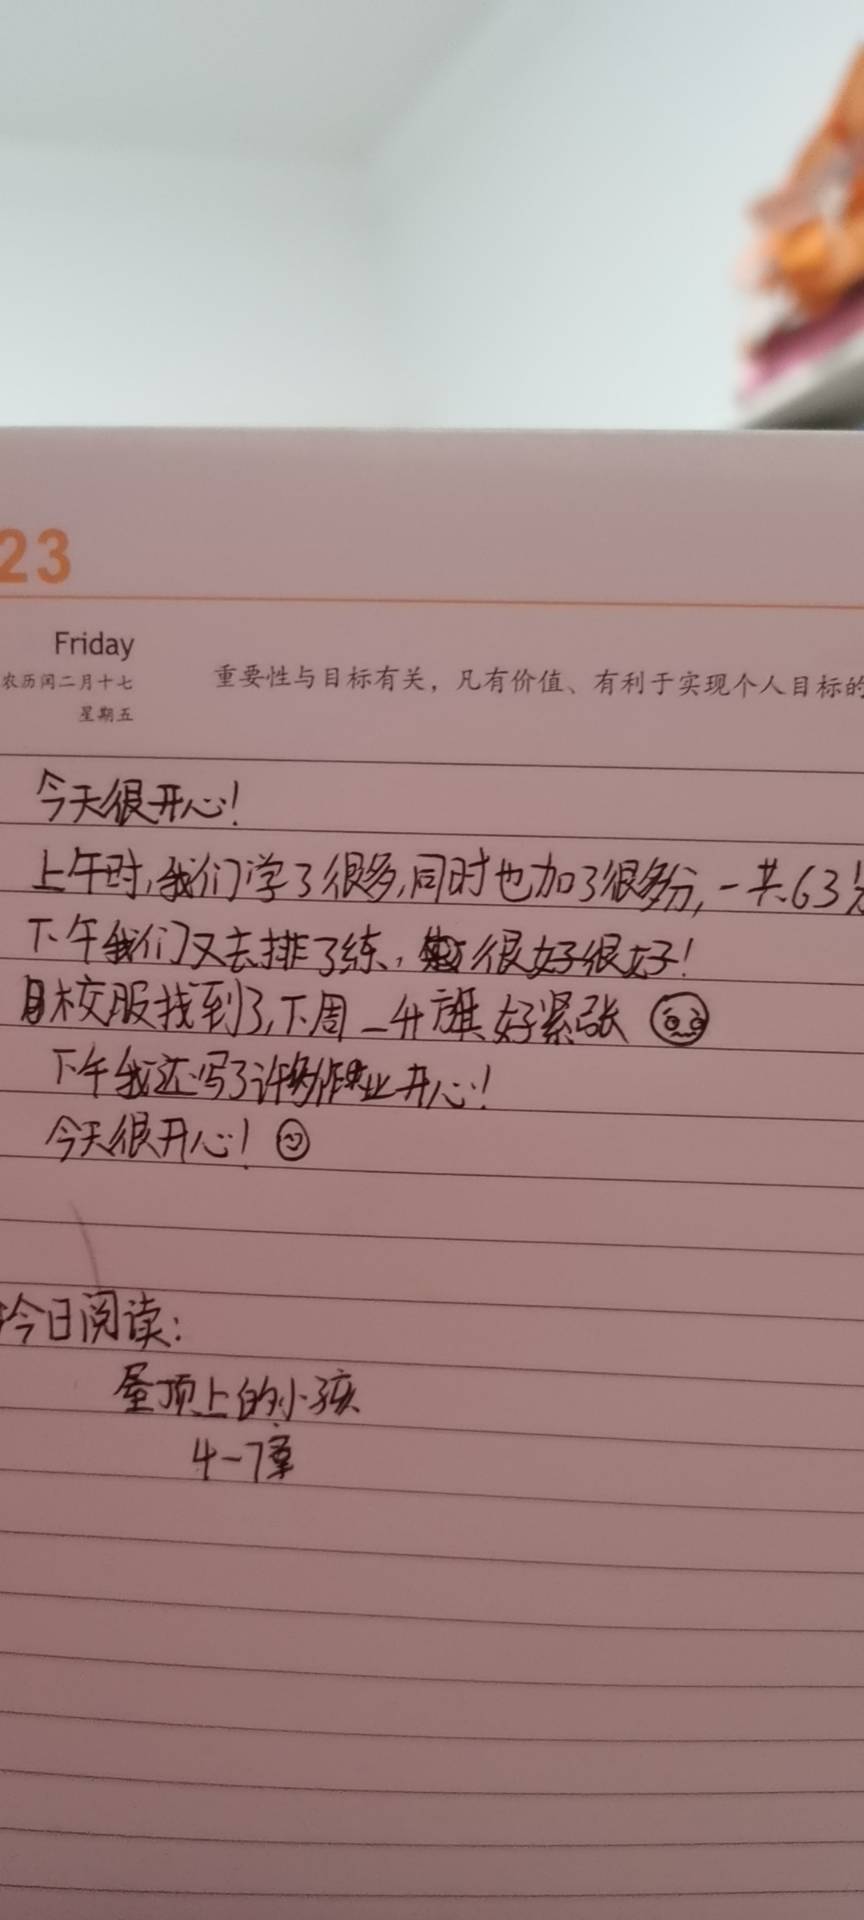 23
Friday
农历闰二月十七
星期五
重要性与目标有关，凡有价值、有利于实现个人目标的
今天很开心！
上午时,我们学了很多,同时也加了很多分,一共63分
下午我们又去排了练，很好很好！
校服找到了,下周一升旗好紧张
下午我还写了许多作业开心！
今天很开心！
今日阅读：
屋顶上的小孩
4-7章